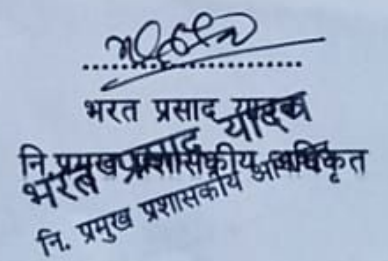 भरत प्रसाद यादव
नि.प्रमुख प्रशासकीय अधिकृत
भरत प्रसाद यादव
नि. प्रमुख प्रशासकीय अधिकृत